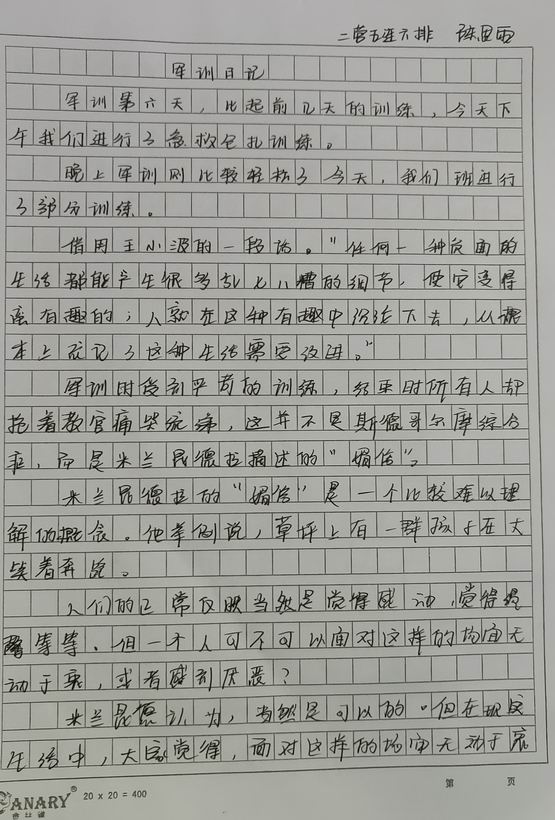 二营五连六排 陈思西
军训日记
军训第六天，比起前几天的训练，今天下
午我们进行了急救包扎训练。
晚上军训则比较轻松了今天，我们班进行
了部分训练。
借用王小波的一段话。“任何一种负面的
生活都能产生很多乱七八糟的细节，使它变得
蛮有趣的；人就在这种有趣中沉沦下去，从根
本上忘记了这种生活需要改进。”
军训时受到严苛的训练，结束时所有人却
抱着教官痛哭流涕，这并不是斯德哥尔摩综合
症，而是米兰昆德拉描述的“媚俗”。
米兰昆德拉的“媚俗”是一个比较难以理
解的概念。他举例说，草坪上有一群孩子在大
笑着奔跑。
人们的正常反映当然是觉得感动，觉得
等等。但一个人可不可以面对这样的场面无
动于衷，或者感到厌恶？
米兰昆德认为，当然是可以的。但在现实
生活中，大家觉得，面对这样的场面无动于衷
ANARY
20 x 20 = 400
第 页